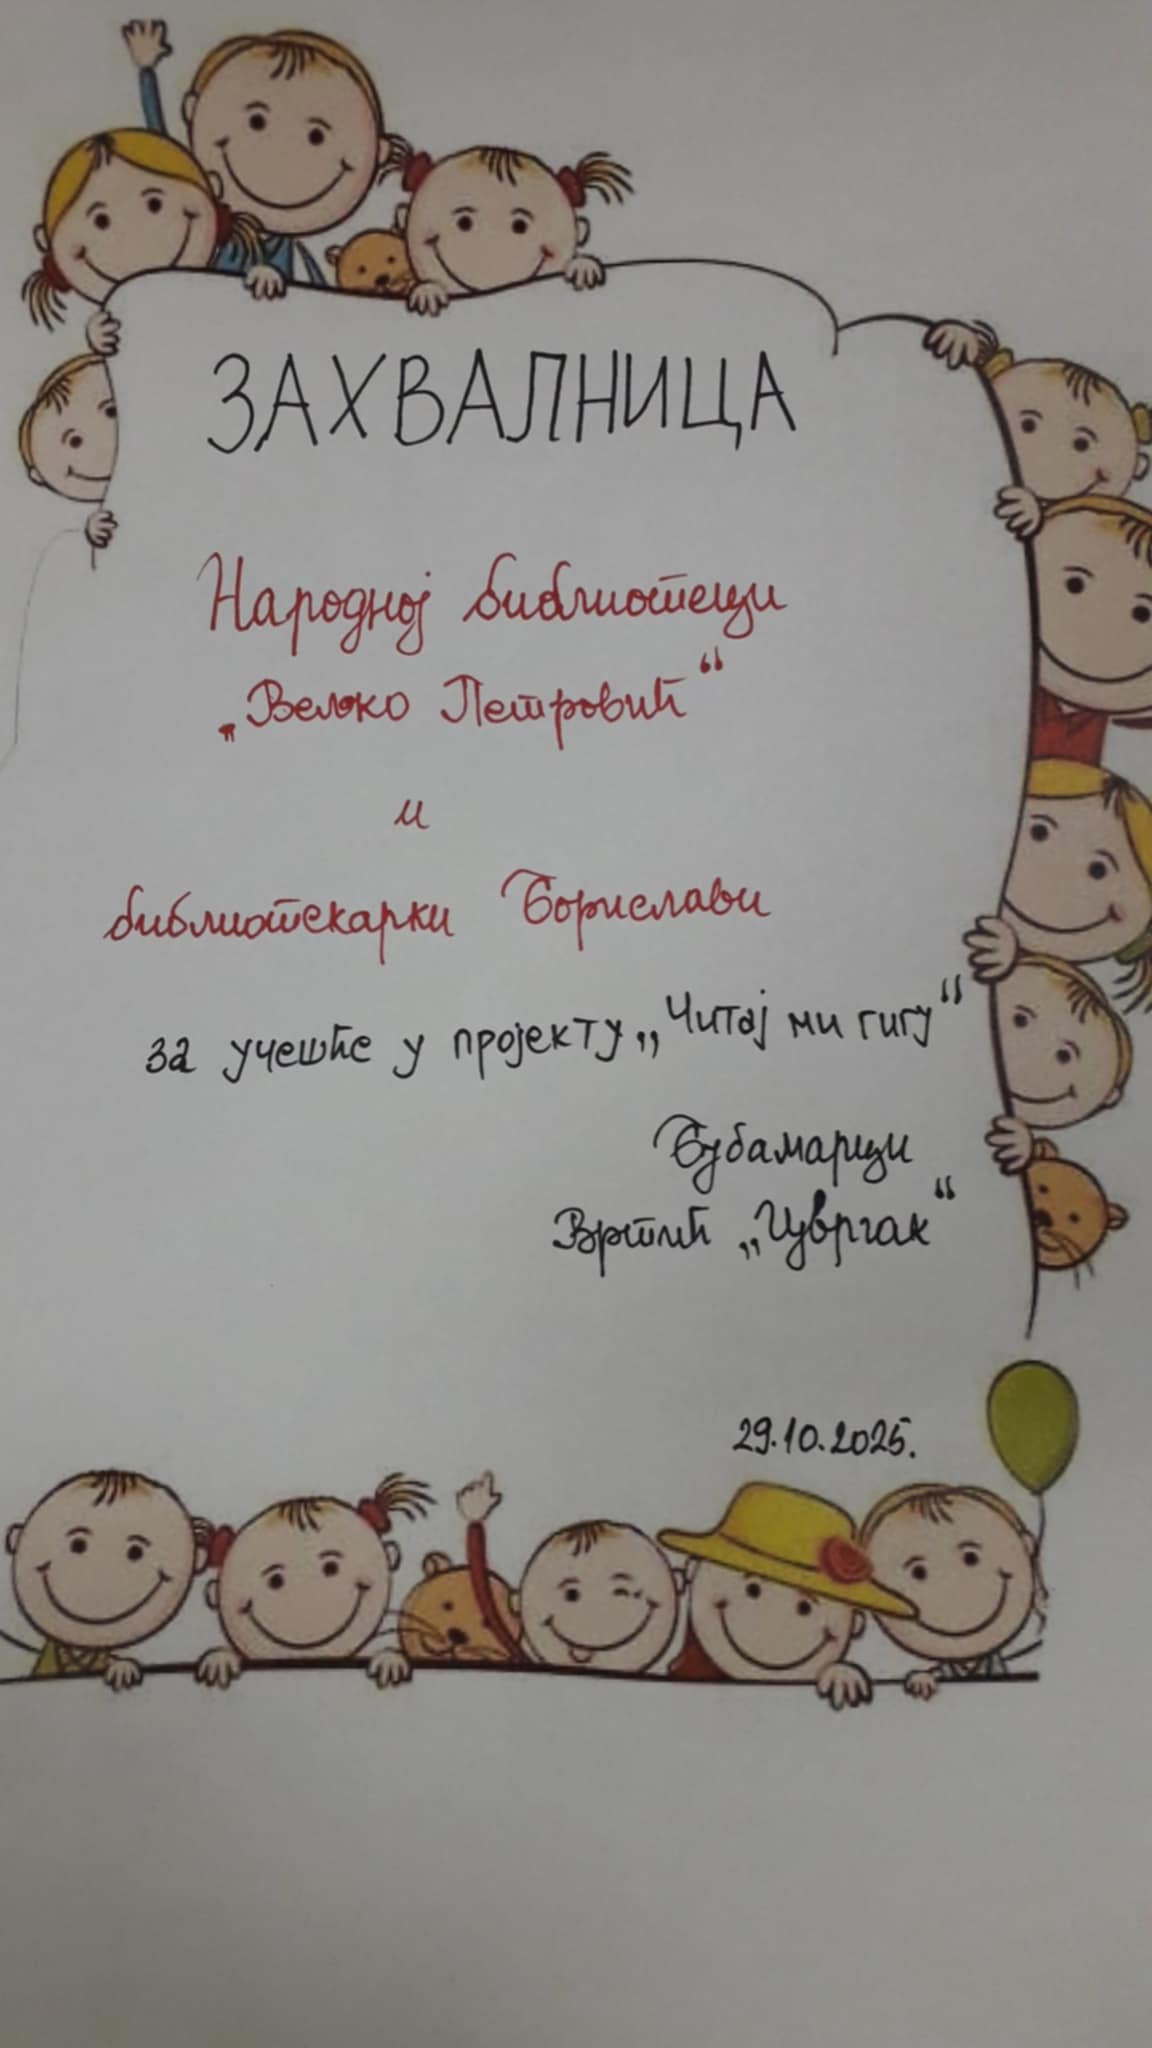 ЗАХВАЛНИЦА
Народној библиотеци
„Вељко Петровић“
и
библиотекарки Борислави
за учешће у пројекту „Читај ми гигу“
Бубамарци
Вртић „Цврчак“
29.10.2025.